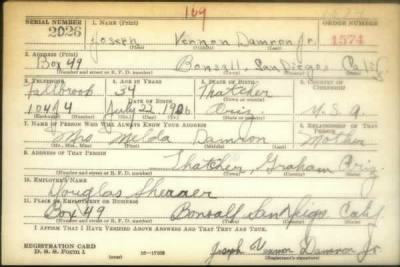 169
SERIAL NUMBER 1. NAME (Print) ORDER NUMBER
2026 Joseph Vernon Damron Jr. 1574
(First) (Middle) (Last)
2. ADDRESS (Print)
Box 49 Bonsall, San Diego Calif
(Number and street or R. F. D. number) (Town) (County) (State)
3. TELEPHONE 4. AGE IN YEARS 5. PLACE OF BIRTH 6. COUNTRY OF CITIZENSHIP
Fallbrook 34 Thatcher
DATE OF BIRTH (Town or county)
104 July 22 1906 Ariz. U.S.A
(Exchange) (Number) (Mo.) (Day) (Yr.) (State or country)
7. NAME OF PERSON WHO WILL ALWAYS KNOW YOUR ADDRESS 8. RELATIONSHIP OF THAT PERSON
Mrs. Damron Mother
(Mr., Mrs., Miss) (First) (Middle) (Last)
9. ADDRESS OF THAT PERSON
Thatcher, Graham Ariz.
(Number and street or R. F. D. number) (Town) (County) (State)
10. EMPLOYER'S NAME
Douglas Shearer
11. PLACE OF EMPLOYMENT OR BUSINESS
Box 49 Bonsall San Diego Calif
(Number and street or R. F. D. number) (Town) (County) (State)
I AFFIRM THAT I HAVE VERIFIED ABOVE ANSWERS AND THAT THEY ARE TRUE.
REGISTRATION CARD
D. S. S. Form 1 16—17105 Joseph Vernon Damron Jr
(Registrant's signature)